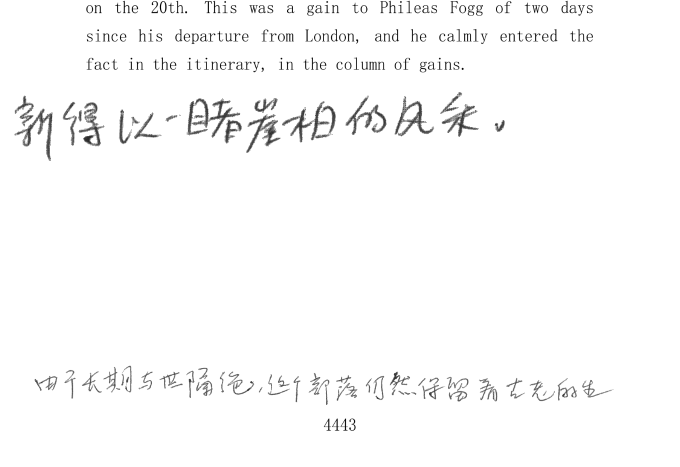 on the 20th. This was a gain to Phileas Fogg of two days
since his departure from London, and he calmly entered the
fact in the itinerary, in the column of gains.
新得以一睹崖柏的风采。
由于长期与世隔绝,这个部落仍然保留着古老的生
4443